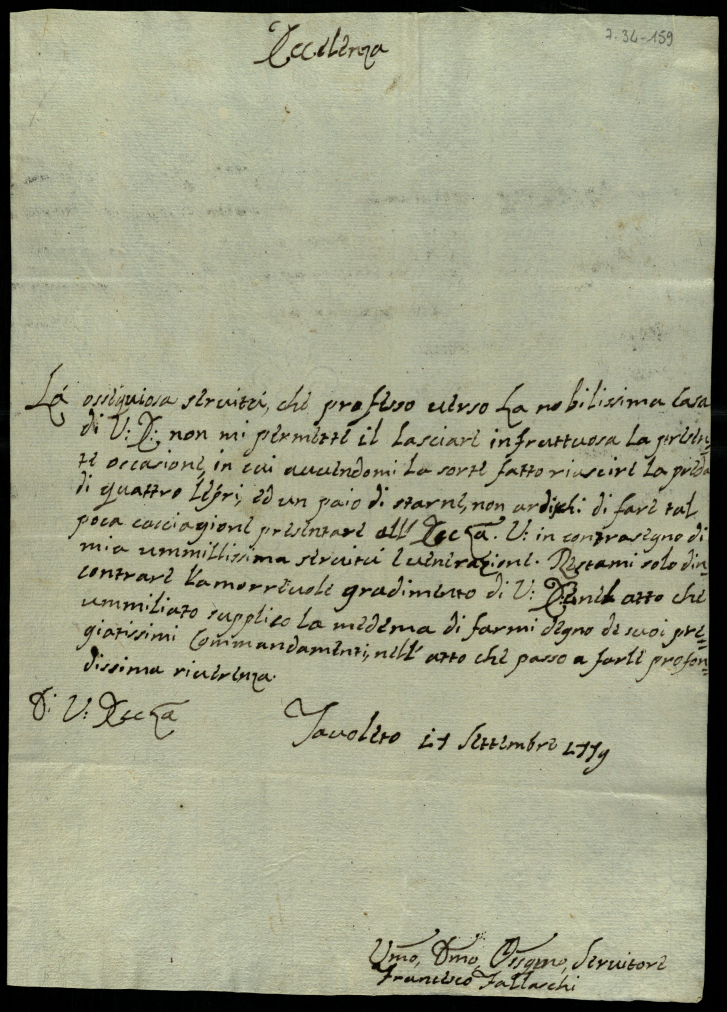 7.34-159
Eccelenza
La ossequiosa servitù, che professo verso La nobilissima Casa
di V: E: non mi permette il Lasciare infruttuosa La presen-
te occasione, in cui avvendomi La sorte fatto riuscire La preda
di quattro Lepri, ed un paio di starne, non ardischi di fare tal
poca cacciagione presentare all' Ecc.za V: in contrasegno di
mia ummillissima servitù e venerazione. Restami solo d'in-
contrare L'amorrevole gradimento di V: E: nel atto che
ummiliato supplico La medema di farmi degno de suoi pre-
giatissimi Commandamenti, nell' atto che passo a farle profon-
dissima riverenza.
Di V: Ecc.za
Tavoleto 17 Settembre 1779
Umo, Dmo, Ossqmo, Servitore
Francesco